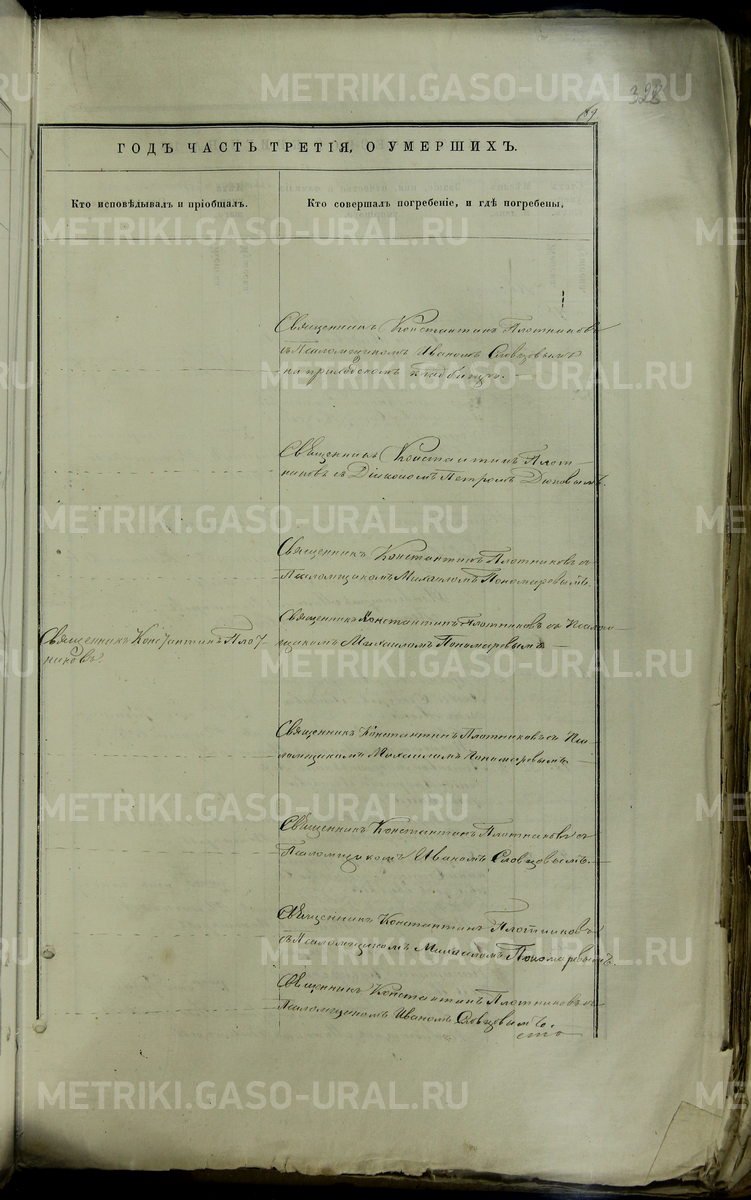 328
89
ГОДЪ ЧАСТЬ ТРЕТІЯ, О УМЕРШИХЪ.
Кто исповѣдывалъ и пріобщалъ.
Кто совершалъ погребеніе, и гдѣ погребены.
Священникъ Константинъ Плотниковъ
съ Псаломщикомъ Иваномъ Словцовымъ
на приходскомъ кладбищѣ.
Священникъ Константинъ Плот-
никовъ съ Діакономъ Петромъ
Священникъ Константинъ Плотниковъ съ
Псаломщикомъ Михаиломъ Пономаревымъ.
Священникъ Константинъ Плот
никовъ.
Священникъ Константинъ Плотниковъ съ Псалом
щикомъ Михаиломъ Пономаревымъ
Священникъ Константинъ Плотниковъ съ Пса
ломщикомъ Михаиломъ Пономаревымъ
Священникъ Константинъ Плотниковъ съ
Псаломщикомъ Иваномъ Словцовымъ.
Священникъ Константинъ Плотниковъ
съ Псаломщикомъ Михаиломъ Пономаревымъ.
Священникъ Константинъ Плотниковъ съ
Псаломщикомъ Иваномъ Словцовымъ.
METRIKI.GASO-URAL.RU
METRIKI.GASO-URAL.RU
METRIKI.GASO-URAL.RU
METRIKI.GASO-URAL.RU
METRIKI.GASO-URAL.RU
METRIKI.GASO-URAL.RU
METRIKI.GASO-URAL.RU
METRIKI.GASO-URAL.RU